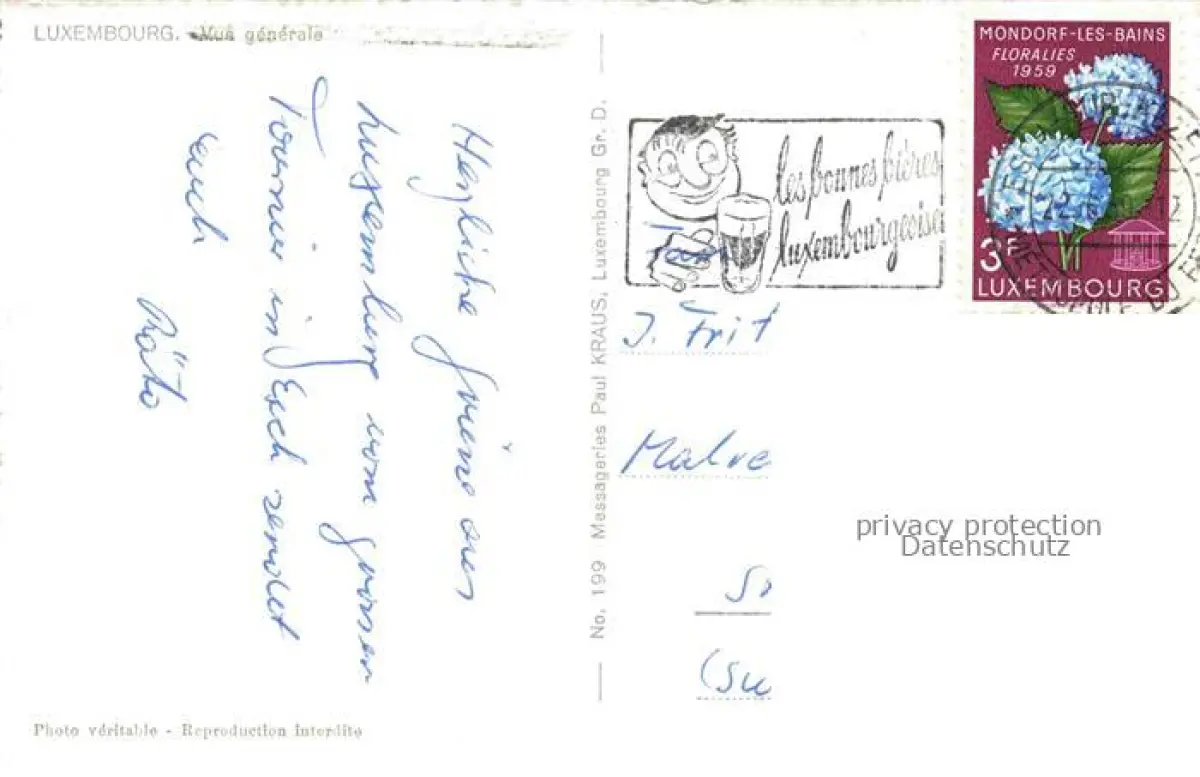 LUXEMBOURG. - Vue générale
Herzliche Grüsse aus
Luxemburg vom grossen
Tournier in Esch sendet
Euch
Räto
No. 199 Messageries Paul KRAUS, Luxembourg Gr. D.
les bonnes bières
luxembourgeoises
MONDORF-LES-BAINS
FLORALIES
1959
3F
LUXEMBOURG
Fam
J. Frit
Malve
privacy protection
Datenschutz
Photo véritable - Reproduction Interdite